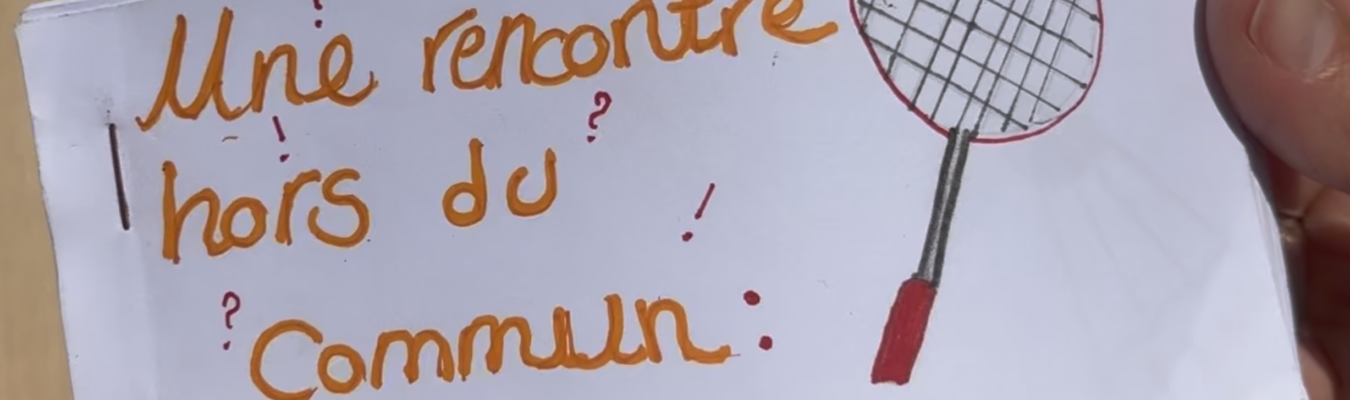 Une rencontre
hors du
Commun :